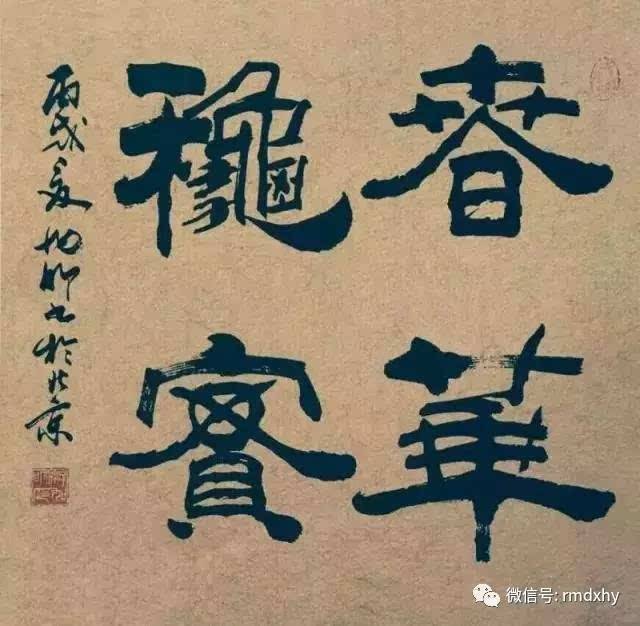 春華
龝實
丙戌夏书於北京
微信号: rmdxhy